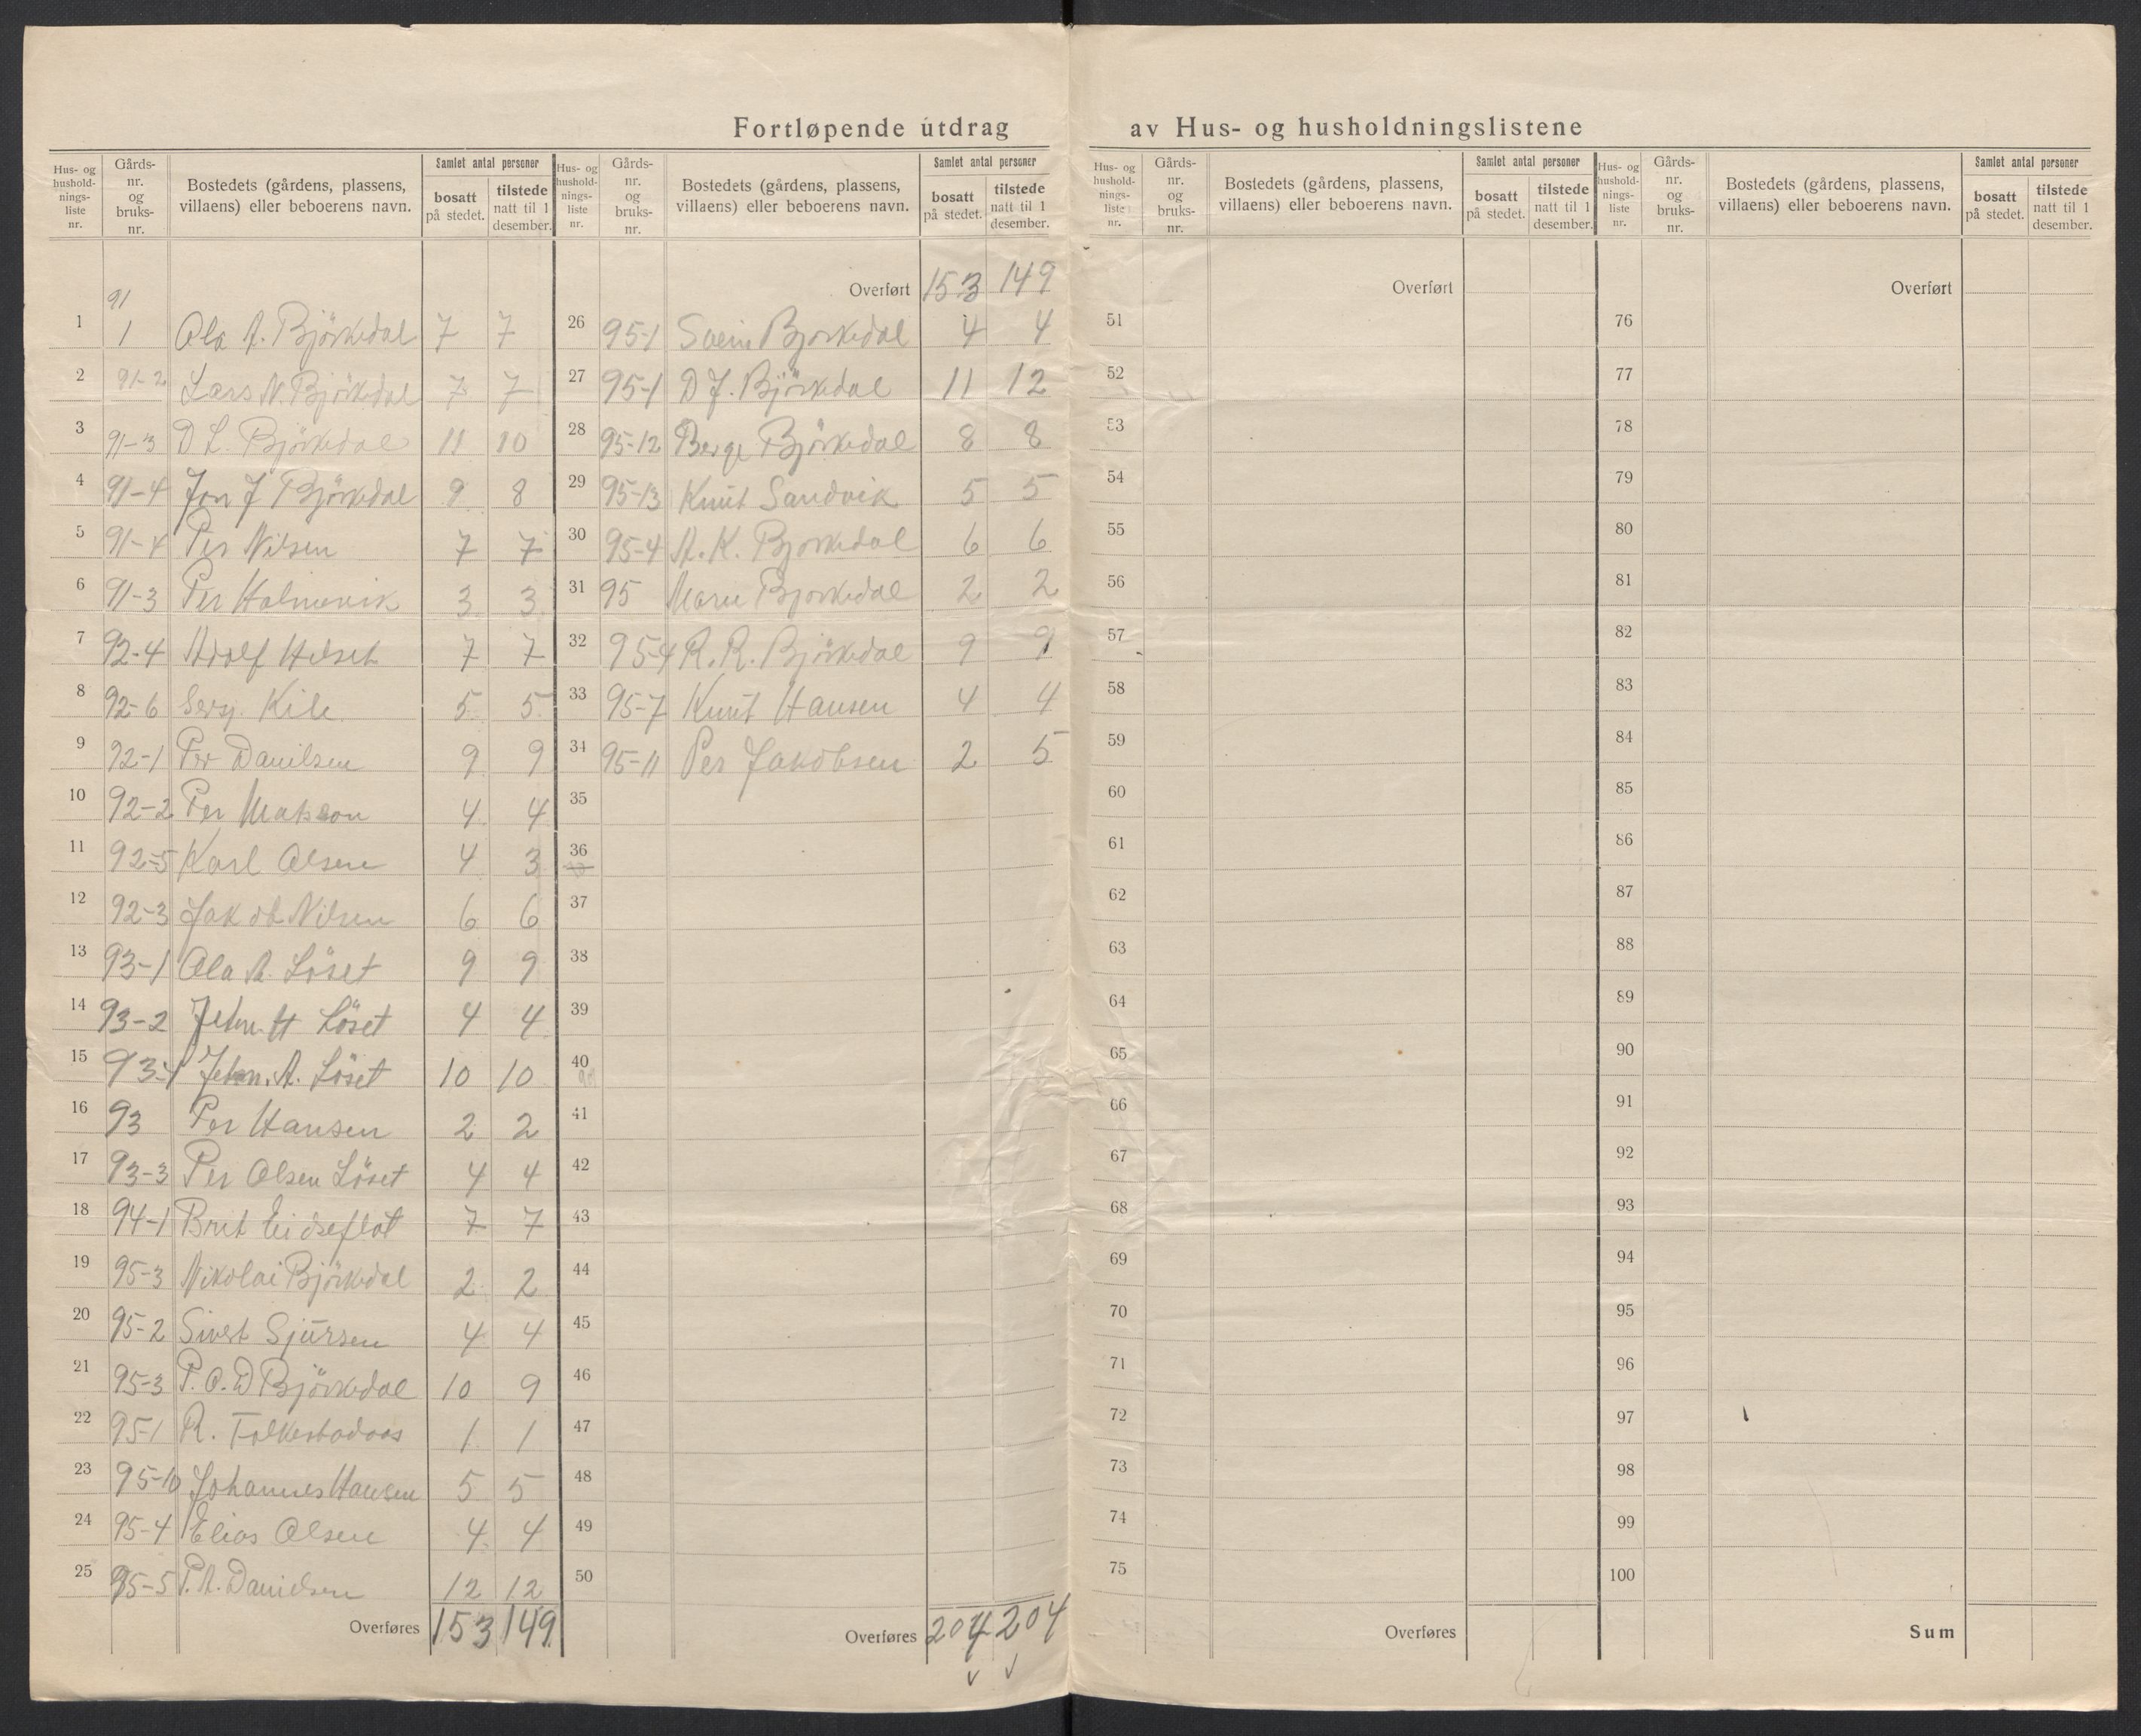 Fortløpende utdrag av Hus- og husholdningslistene
Hus- og husholdnings-liste nr. Gårds-nr. og bruks-nr. Bostedets (gårdens, plassens, villaens) eller beboerens navn. Samlet antal personer bosatt på stedet. tilstede natt til 1 desember.
1 91 1 Ola A. Björkedal 7 7
2 91-2 Lars N. Björkedal 7 7
3 91-3 D L. Björkedal 11 10
4 91-4 Jon J Björkedal 9 8
5 91-4 Per Nilsen 7 7
6 91-3 Per Holmevik 3 3
7 92-4 Adolf Hilset 7 7
8 92-6 Serg. Kile 5 5
9 92-1 Per Danilsen 9 9
10 92-2 Per Matsson 4 4
11 92-5 Karl Olsen 4 3
12 92-3 Jakob Nilsen 6 6
13 93-1 Ola A. Löset 9 9
14 93-2 Jehn. H Löset 4 4
15 93-4 Jehn. A. Löset 10 10
16 93 Per Hansen 2 2
17 93-3 Per Olsen Löset 4 4
18 94-1 Brit Eidseflot 7 7
19 95-3 Nikolai Björkedal 2 2
20 95-2 Sivert Sjursen 4 4
21 95-3 P. O. D Björkedal 10 9
22 95-1 R. Folkestadaas 1 1
23 95-10 Johannes Hansen 5 5
24 95-4 Elias Olsen 4 4
25 95-5 P. A. Danielsen 12 12
Overføres 153 149
Hus- og husholdnings-liste nr. Gårds-nr. og bruks-nr. Bostedets (gårdens, plassens, villaens) eller beboerens navn. Samlet antal personer bosatt på stedet. tilstede natt til 1 desember.
Overført 153 149
26 95-1 Svein Bjorkedal 4 4
27 95-1 D J. Björkedal 11 12
28 95-12 Berge Björkedal 8 8
29 95-13 Knut Sandvik 5 5
30 95-4 A. K. Bjorkedal 6 6
31 95 Marie Bjorkedal 2 2
32 95-4 R. R. Björkedal 9 9
33 95-7 Knut Hansen 4 4
34 95-11 Per Jakobsen 2 5
35
36
37
38
39
40
41
42
43
44
45
46
47
48
49
50
Overføres 204 204
Hus- og husholdnings-liste nr. Gårds-nr. og bruks-nr. Bostedets (gårdens, plassens, villaens) eller beboerens navn. Samlet antal personer bosatt på stedet. tilstede natt til 1 desember.
Overført
51
52
53
54
55
56
57
58
59
60
61
62
63
64
65
66
67
68
69
70
71
72
73
74
75
Overføres
Hus- og husholdnings-liste nr. Gårds-nr. og bruks-nr. Bostedets (gårdens, plassens, villaens) eller beboerens navn. Samlet antal personer bosatt på stedet. tilstede natt til 1 desember.
Overført
76
77
78
79
80
81
82
83
84
85
86
87
88
89
90
91
92
93
94
95
96
97
98
99
100
Sum